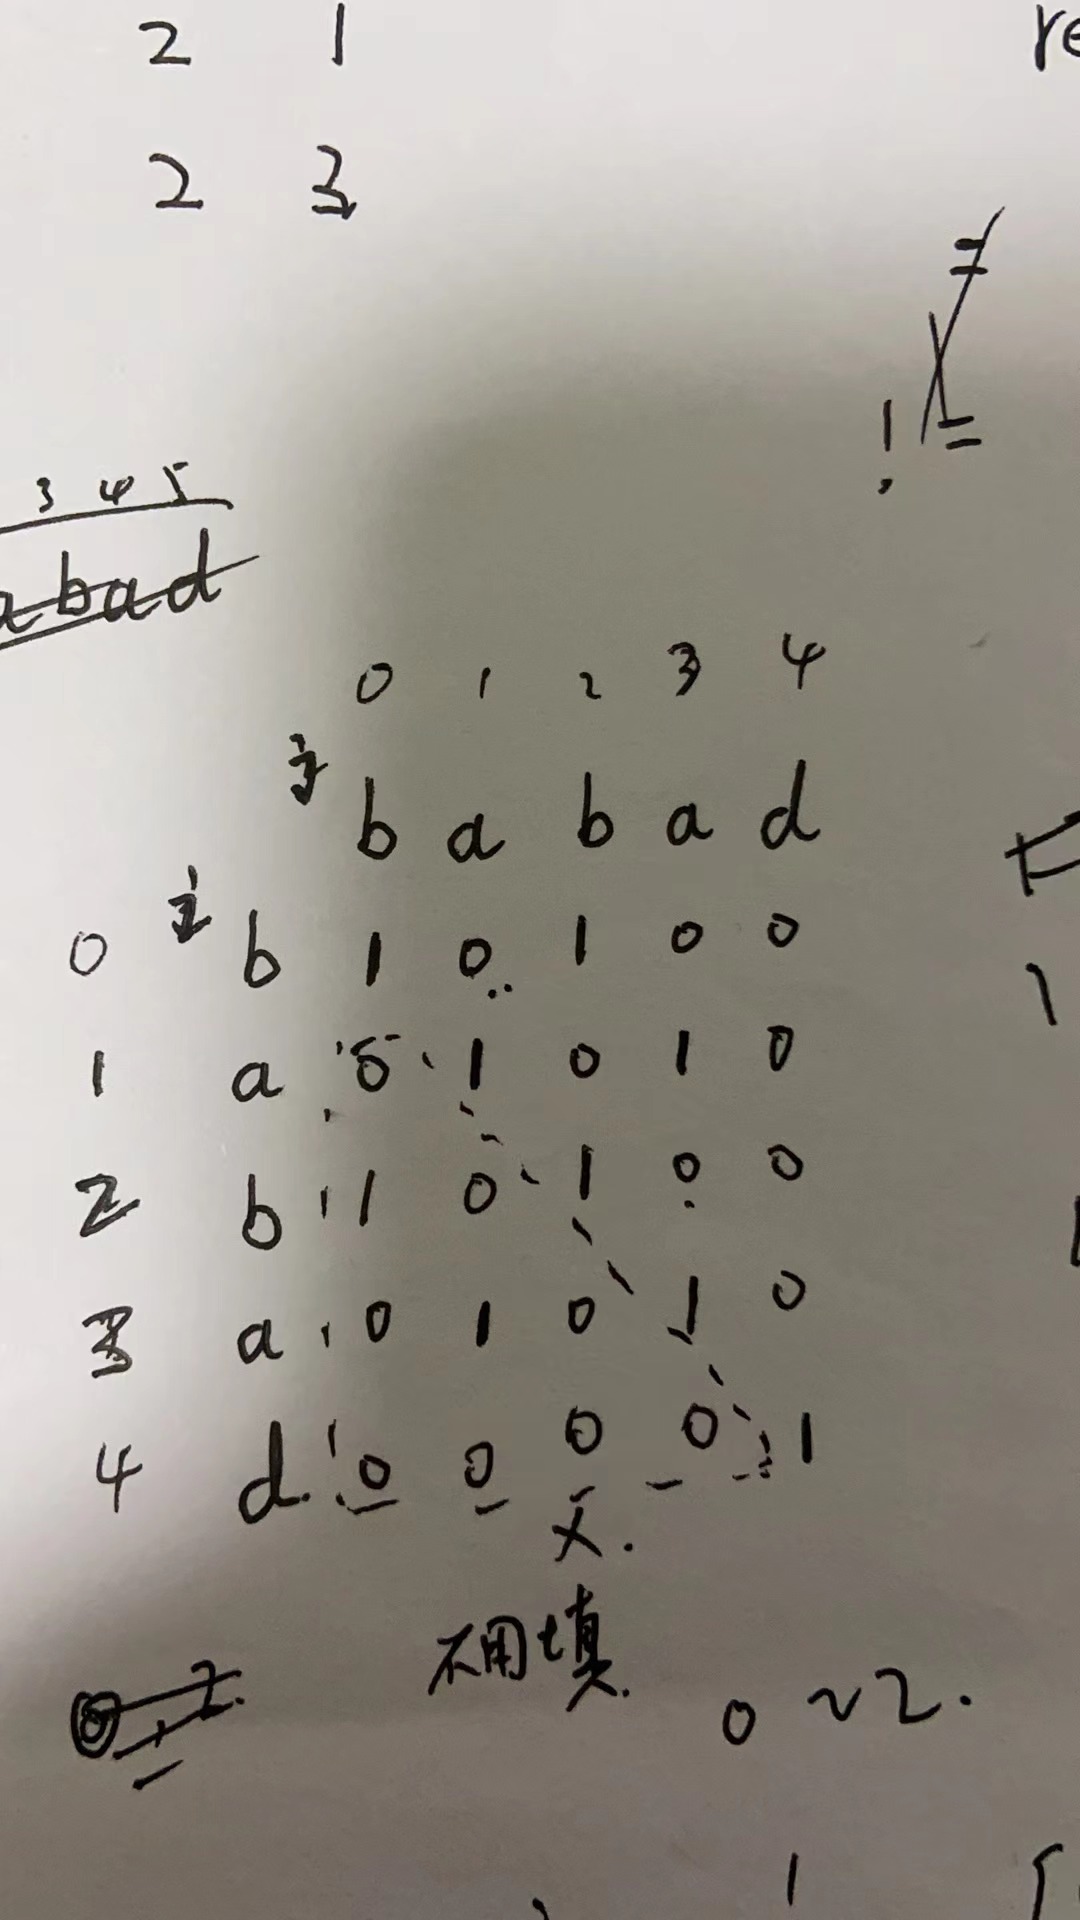 2 1 re
2 3
3 4 5
abad
0 1 2 3 4
j b a b a d
0 i b 1 0 1 0 0
1 a 0 1 0 1 0
2 b 1 0 1 0 0
3 a 0 1 0 1 0
4 d 0 0 0 0 1
不用填.
0 ~ 2.
1